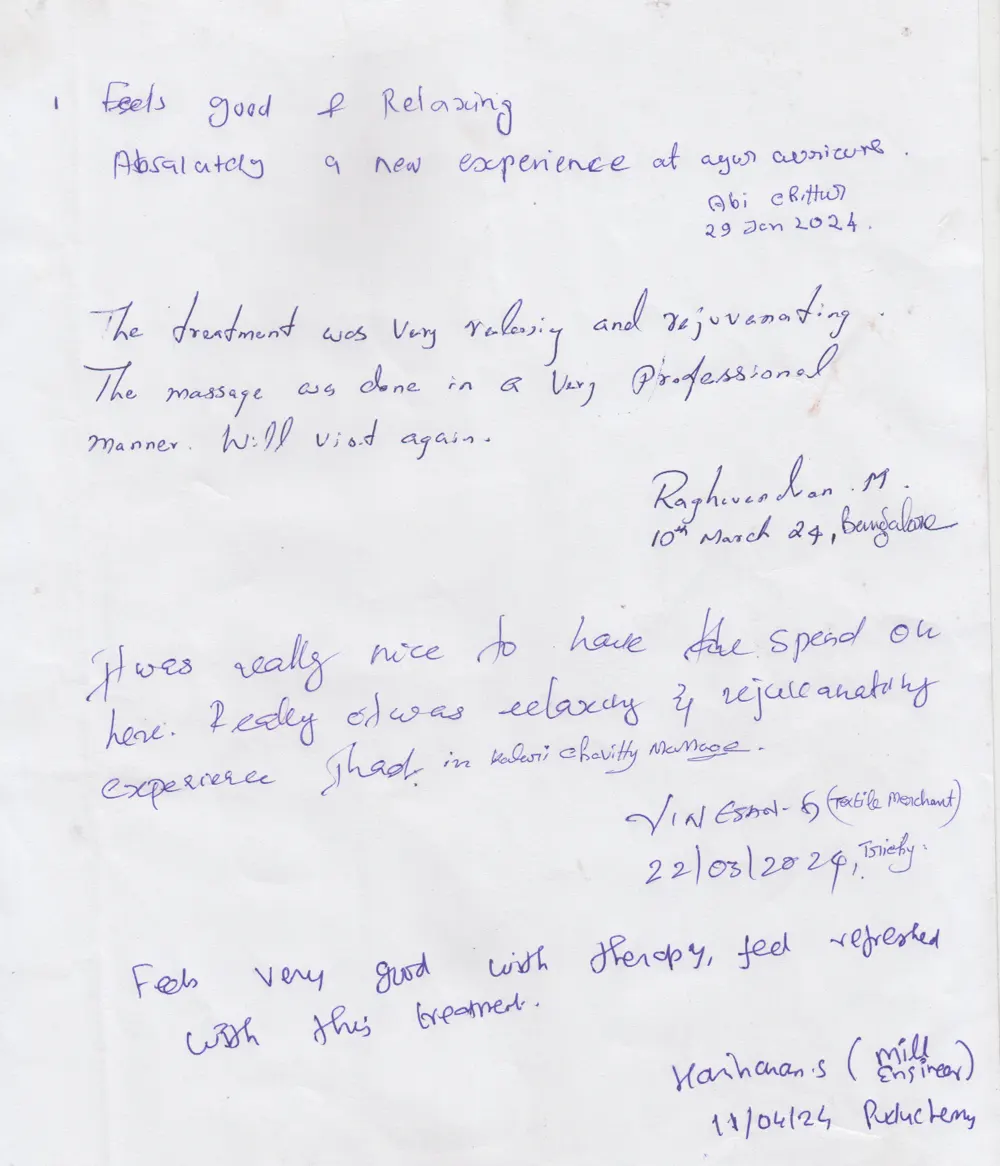 Feels good & Relaxing
Absalutely a new experience at ayur
Abi Chittur
29 Jan 2024.
The treatment was Very relaxing and rejuvanating.
The massage was done in a Very Professional
manner. Will visit again.
Raghavendran. M.
10th March 24, Bangalore
It was really nice to have the spend on
here. Really it was relaxing &
experience I had in Kalari chavitty Massage.
VINESAN-G (Textile Merchant)
22/03/2024, Trichy.
Feels very good with therapy, feel refreshed
with this treatment.
Hariharan.S (Mill
Engineer)
11/04/24 Puducherry